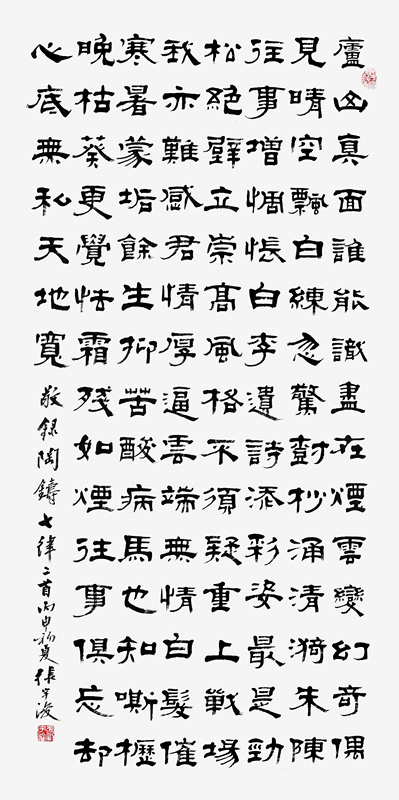 廬山真面誰能識盡在煙雲變幻奇偶
見晴空飄白練忽驚尌杪涌清漪朱陳
往事增惆悵白李遺詩添彩姿最是勁
松絕壁立崇高風格不須疑重上戰場
我亦難感君情厚逼雲端無情白髮催
寒暑蒙垢餘生抑苦酸病馬也知嘶櫪
晚枯葵更覺怯霜殘如煙往事俱忘却
心底無私天地寬 敬錄陶鑄七律二首丙申初夏張宇